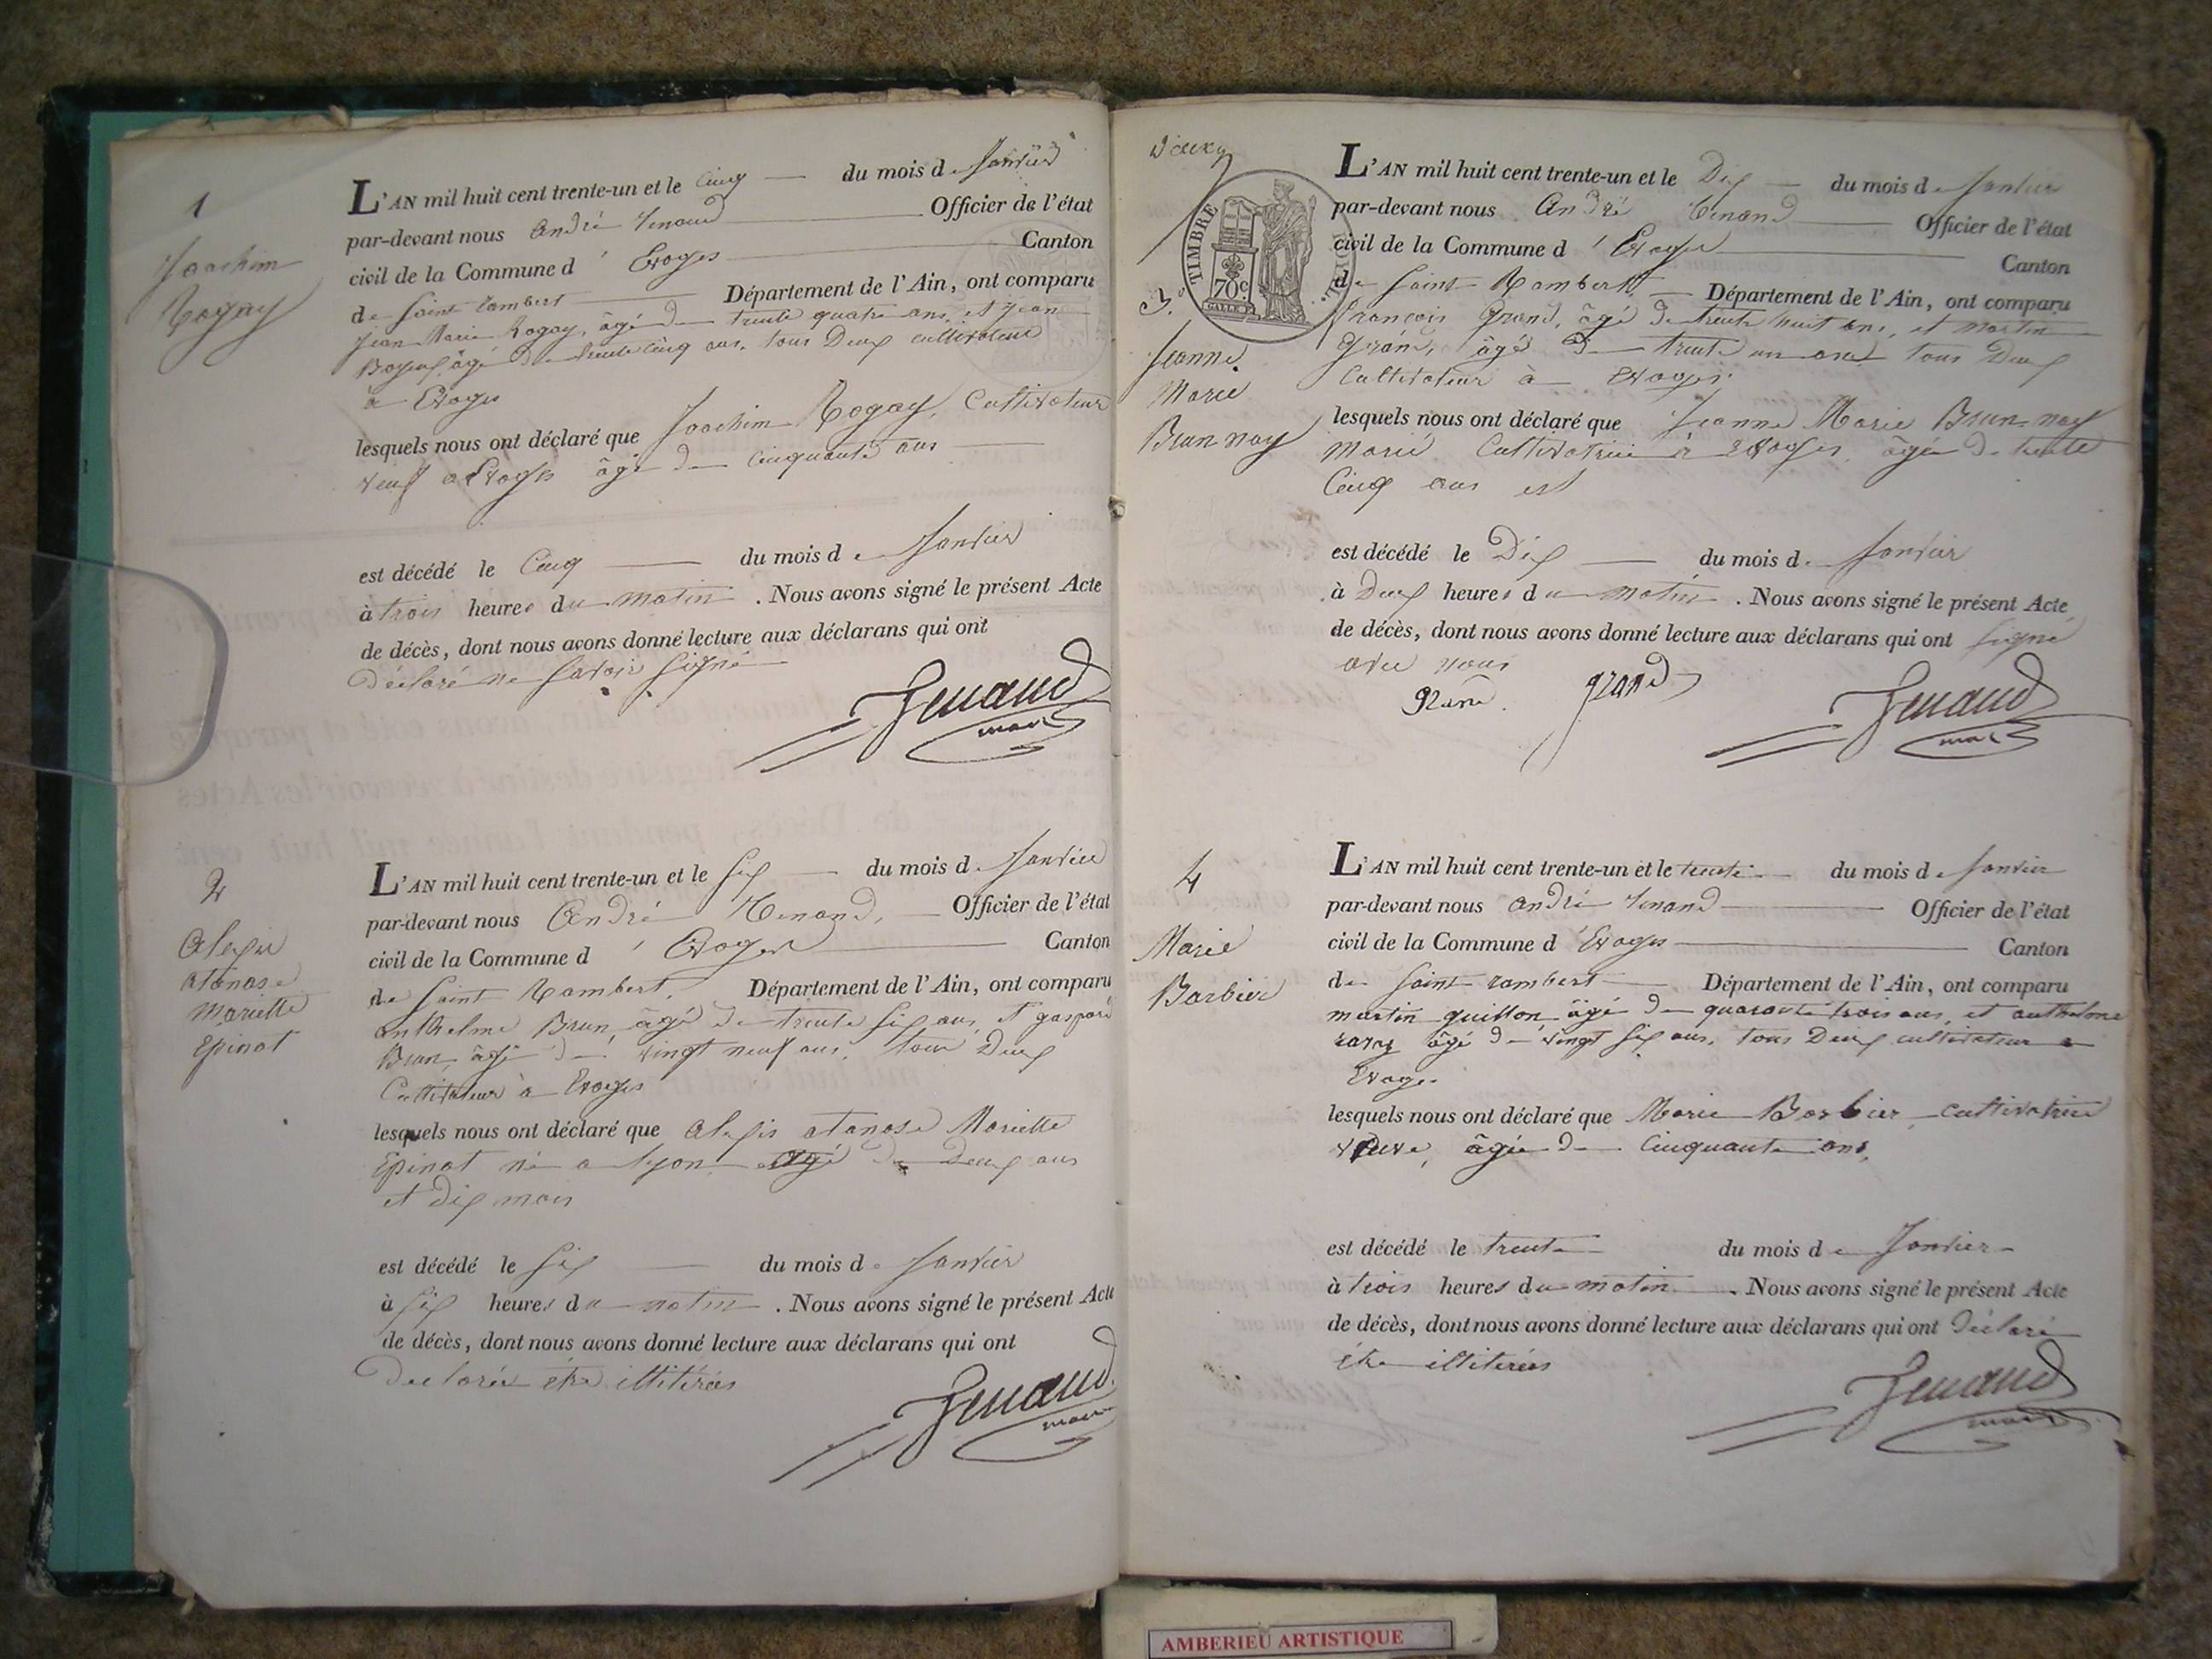 1
Joachim
Rogay
L'AN mil huit cent trente-un et le Cinq du mois de Janvier
par-devant nous André Tenand Officier de l'état
civil de la Commune d' Evoges Canton
de Saint rambert Département de l'Ain, ont comparu
Jean Marie Rogay, âgé de trente quatre ans, et Jean
âgé de trente cinq ans, tous Deux cultivateur
à Evoges
lesquels nous ont déclaré que Joachim Rogay, Cultivateur
veuf a Evoges âgé de cinquante ans
est décédé le Cinq du mois de Janvier
à trois heures du matin. Nous avons signé le présent Acte
de décès, dont nous avons donné lecture aux déclarans qui ont
Déclaré ne Savoir Signé
Tenand
maire
2
Alexis
atanase
Mariette
Epinat
L'AN mil huit cent trente-un et le Six du mois de Janvier
par-devant nous André Tenand, Officier de l'état
civil de la Commune d' Evoges Canton
de Saint Rambert, Département de l'Ain, ont comparu
anthelme Brun, âgé de trente Six ans, et gaspard
Brun, âgé de vingt neuf ans, tous Deux
Cultivateur à Evoges
lesquels nous ont déclaré que Alexis atanase Mariette
Epinat né a lyon âgé de Deux ans
et Dix mois
est décédé le Six du mois de Janvier
à Six heures du matin. Nous avons signé le présent Acte
de décès, dont nous avons donné lecture aux déclarans qui ont
Declarés être illitérées
Tenand
maire
Deux
TIMBRE ROYAL
70 c.
3.
Jeanne
Marie
Brun nay
L'AN mil huit cent trente-un et le Dix du mois de Janvier
par-devant nous André Tenand Officier de l'état
civil de la Commune d' Evoges Canton
de Saint Rambert, Département de l'Ain, ont comparu
françois Grand, âgé de trente huit ans, et martin
Grand, âgé de trente un ans tous Deux
Cultivateur à Evoges
lesquels nous ont déclaré que Jeanne Marie Brun-nay
Marié Cultivatrice à Evoges, âgée de trente
Cinq ans est
est décédé le Dix du mois de Janvier
à Deux heures du matin. Nous avons signé le présent Acte
de décès, dont nous avons donné lecture aux déclarans qui ont Signé
avec nous
grand
Tenand
maire
4
Marie
Barbier
L'AN mil huit cent trente-un et le trente du mois de Janvier
par-devant nous André Tenand Officier de l'état
civil de la Commune d' Evoges Canton
de Saint rambert Département de l'Ain, ont comparu
martin guillon, âgé de quarante trois ans, et anthelme
ravy âgé de vingt Six ans, tous Deux cultivateur a
Evoges
lesquels nous ont déclaré que Marie Barbier, cultivatrice
veuve, âgée de Cinquante ans,
est décédé le trente du mois de Janvier
à trois heures du matin. Nous avons signé le présent Acte
de décès, dont nous avons donné lecture aux déclarans qui ont Déclaré
être illiterées
Tenand
maire
AMBERIEU ARTISTIQUE